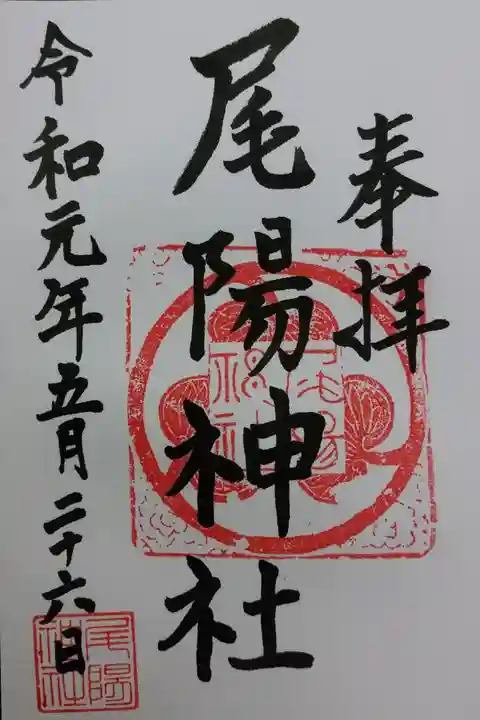 奉拝
尾陽神社
令和元年五月二十六日
尾陽神社
尾陽神社